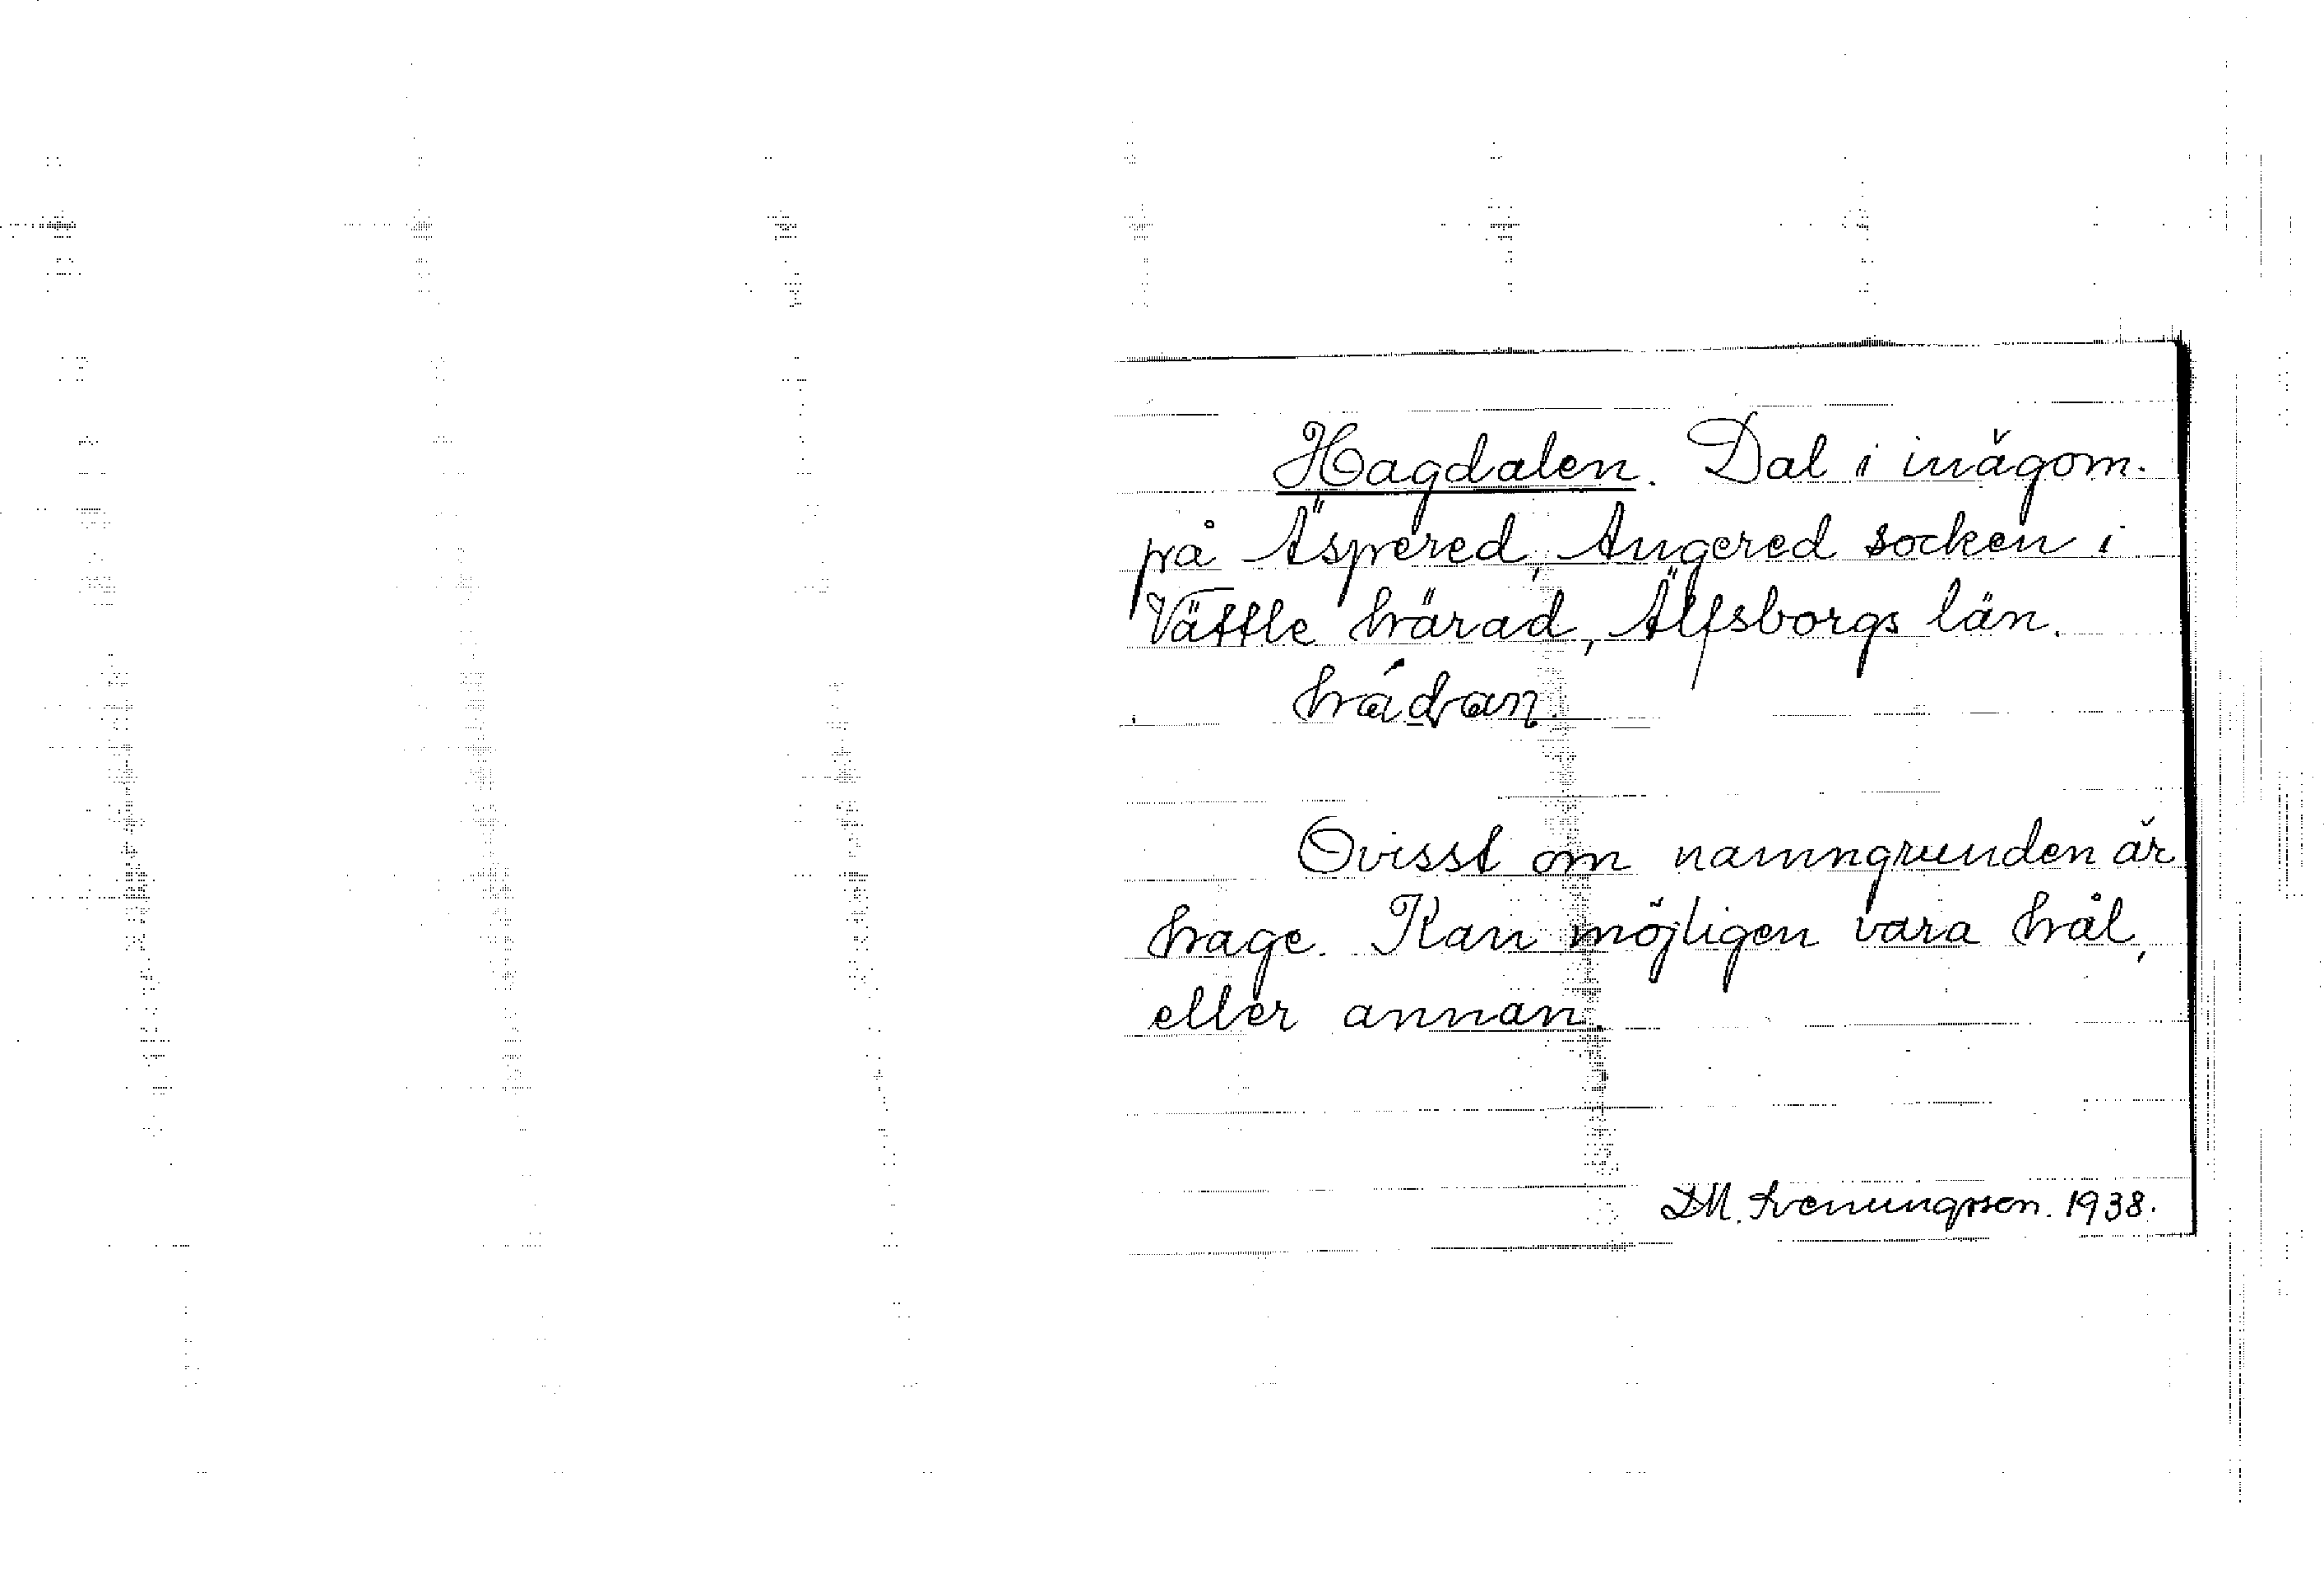 Hagdalen. Dal i inägom.
på Äspered, Angered socken i
Vättle härad, Älfsborgs län.
hádan.
Ovisst om namngrunden är
hage. Kan möjligen vara hål,
eller annan.
D.M. Svenungsson. 1938.